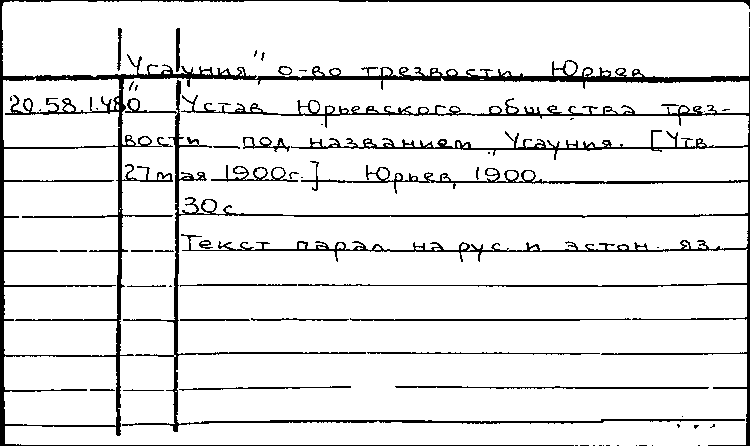 „Усауния", о-во трезвости. Юрьев
20.58.1.480 Устав Юрьевского общества трез-
вости под названием „Усауния. [Утв.
27 мая 1900г.] Юрьев, 1900.
30с.
Текст парал. на рус. и эстон. яз.